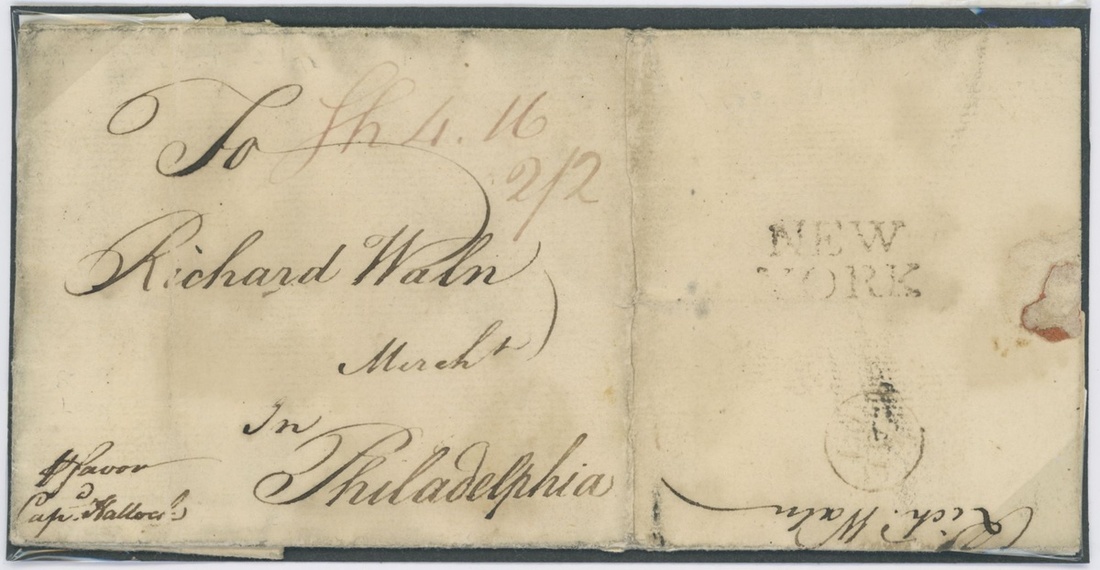 To
Sh 4. 16
2/2
Richard Waln
Mercht
In
Philadelphia
favor
NEW
YORK
Rich. Waln